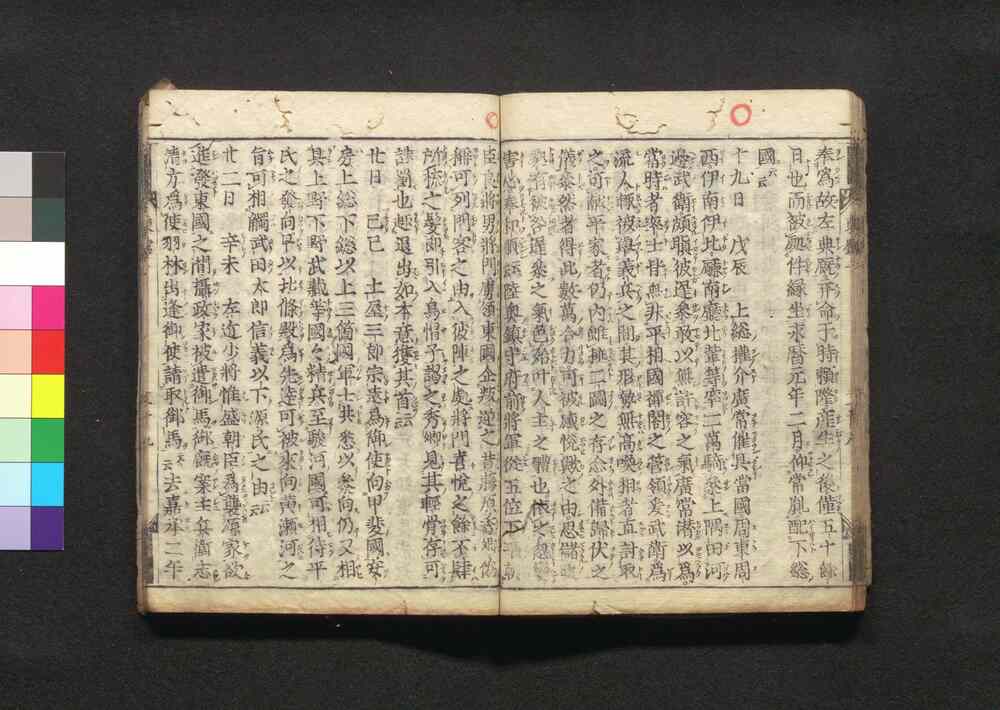 奉爲故左典厩平命于時頼隆産生之後僅五十餘
日也而被件縁坐永暦元年二月仰常胤配下總
國云云
十九日 戊辰 上總權介廣常催具當國周東周
西伊南伊北廳南廳北輩等率二萬騎參上隅田河
邊武衛頗瞋彼遲參敢以無許容之氣廣常潜以爲
當時者率土皆無非平相國禪閤之管領爰武衛爲
流人輙被擧義兵之間其形勢無高喚相者直討取
之可獻平家者仍内雖挿二圖之存念外備歸伏之
儀參然者得此數萬合力可被感悦歟之由思儲之
處有被咎遲參之氣色殆叶人主之體也依之忽變
害心奉和順云云陸奥鎮守府前將軍從五位下平朝
臣良將男將門虜領東國企叛逆之昔藤原秀郷僞
稱可列門客之由入彼陣之處將門喜悦之餘不肆
所梳之髮即引入烏帽子謁之秀郷見其輕骨存可
誅罰也趣退出如本意獲其首云云
廿日 己巳 土屋三郎宗遠爲御使向甲斐國安
房上總下總以上三箇國軍士悉以參向仍又相
具上野下野武藏等國々精兵至駿河國可相待平
氏之發向早以北條殿爲先達可被來向黄瀬河之
旨可相觸武田太郎信義以下源氏之由云云
廿二日 辛未 左近少將惟盛朝臣爲襲源家欲
進發東國之間攝政家被遣御馬御厩案主兵衛志
清方爲使羽林出逢御使請取御馬云云去嘉承二年